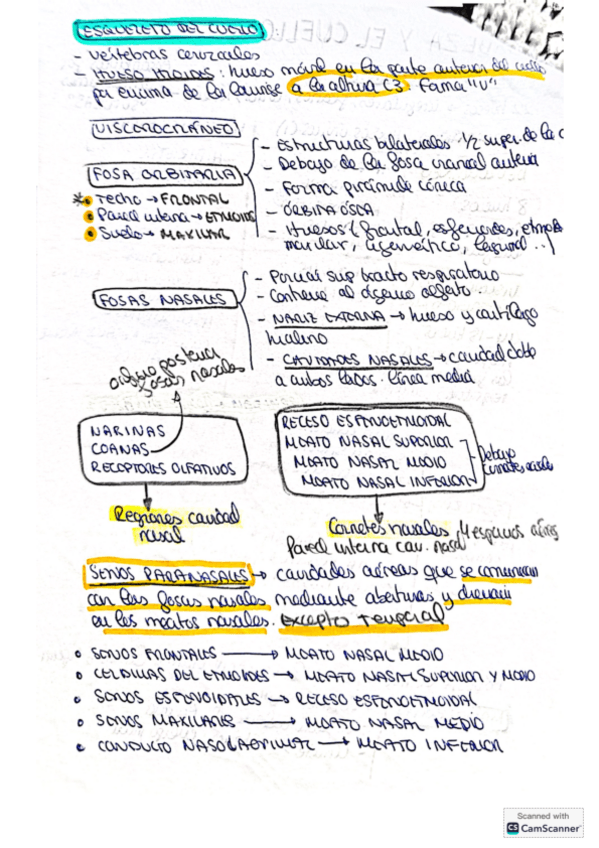 ESQUELETO DEL CUELLO
- Vértebras cervicales
- HUESO HIOIDES: hueso móvil en la parte anterior del cuello
por encima de la laringe a la altura C3. Forma "U"
VISCEROCRÁNEO
FOSA ORBITARIA
* Techo → FRONTAL
Pared interna → ETMOIDES
Suelo → MAXILAR
- Estructuras bilaterales 1/2 super. de la c
- Debajo de la fosa craneal anterior
- Forma pirámide cónica
- ÓRBITA ÓSEA
- Huesos (frontal, esfenoides, etmoides
maxilar, cigomático, lagrimal ..)
FOSAS NASALES
- Porción sup tracto respiratorio
- Contiene al órgano olfato
- NARIZ EXTERNA → hueso y cartílago
hialino
- CAVIDADES NASALES → cavidad doble
a ambos lados línea media
orificio posterior
fosas nasales
NARINAS
COANAS
RECEPTORES OLFATIVOS
Regiones cavidad
nasal
RECESO ESFENOETMOIDAL
MEATO NASAL SUPERIOR
MEATO NASAL MEDIO
MEATO NASAL INFERIOR
Debajo
cornetes nasales
Cornetes nasales 4 espacios aéreos
Pared interna cav. nasal
SENOS PARANASALES → cavidades aéreas que se comunican
con las fosas nasales mediante aberturas y drenan
en los meatos nasales. Excepto temporal
• SENOS FRONTALES → MEATO NASAL MEDIO
• CELDILLAS DEL ETMOIDES → MEATO NASAL SUPERIOR Y MEDIO
• SENOS ESFENOIDALES → RECESO ESFENOETMOIDAL
• SENOS MAXILARES → MEATO NASAL MEDIO
• CONDUCTO NASOLAGRIMAL → MEATO INFERIOR
Scanned with
CS CamScanner